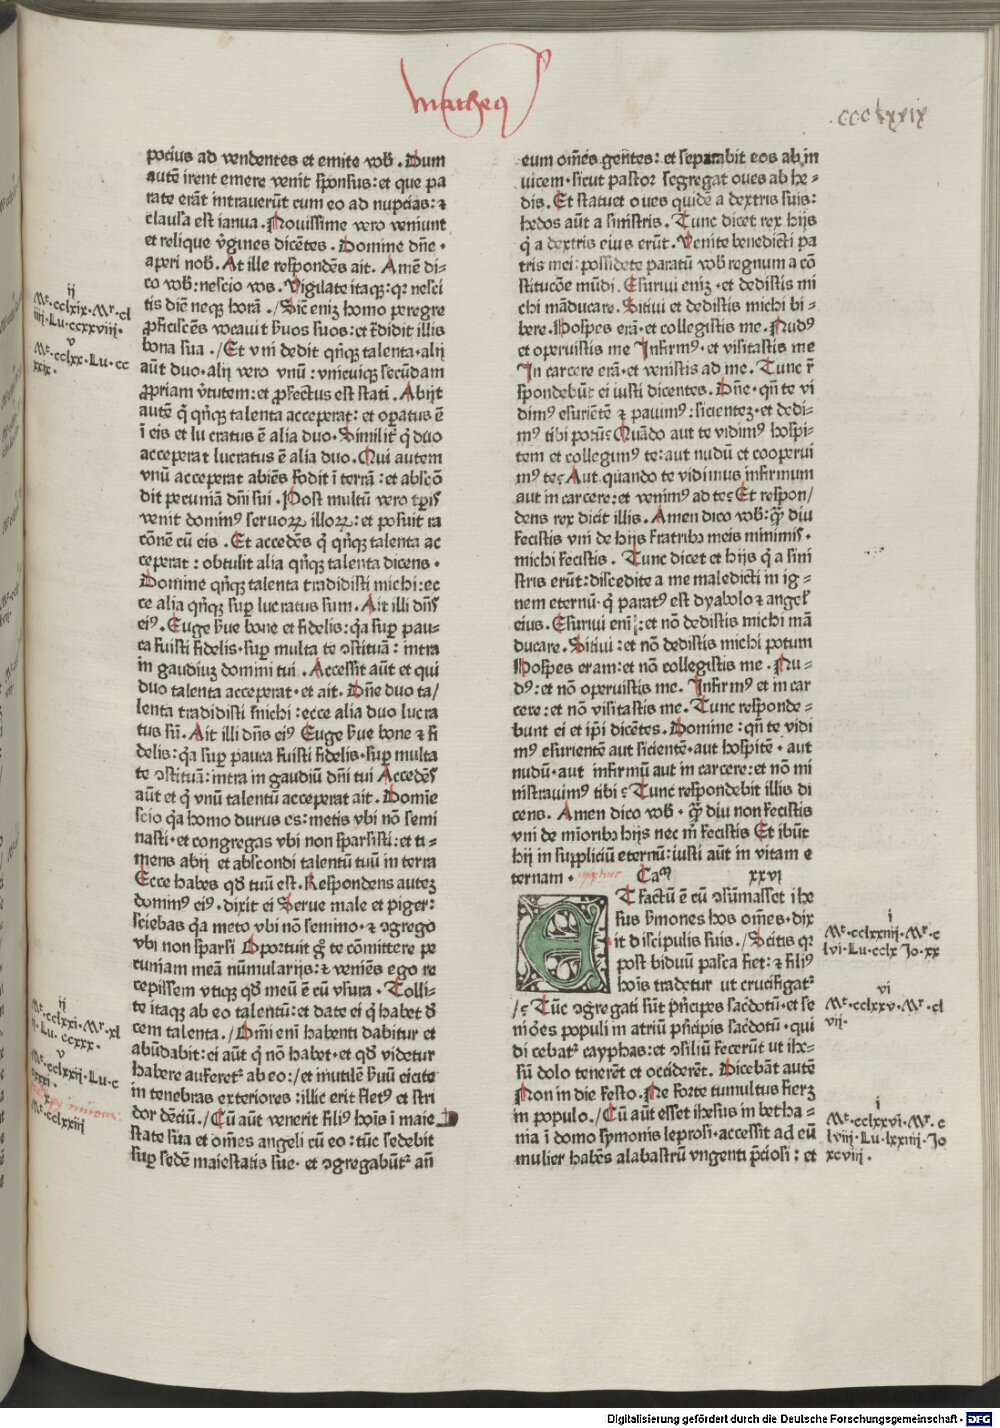 Matheus
ccclxxix
potius ad vendentes et emite vob̄. Dum
autē irent emere venit sponsus: et que pa
rate erāt intraverūt cum eo ad nuptias: ⁊
clausa est ianua. Novissime vero veniunt
et relique v̄gines dicētes. Domine dn̄e.
aperi nob̄. At ille respondēs ait. Amē di-
co vob̄: nescio vos. Vigilate itaqꝫ: qꝛ nesci
tis diē neqꝫ horā. /Sic̄ enīꝫ homo peregre
ꝓficiscēs vocavit s̄vos suos: et t̄didit illis
bona sua. /Et vni dedit qn̄qꝫ talenta. alij
aūt duo. alij vero vnū: vnicuiqꝫ secūdam
ꝓpriam v̄tutem: et ꝓfectus est statī. Abijt
autē q̄ qn̄qꝫ talenta acceperat: et oꝑatus ē
ī eis et lu cratus ē alia duo. Similit̄ q̄ duo
acceperat lucratus ē alia duo. Qui autem
vnū acceperat abiēs fodit ī terrā: et abscō
dit pecuniā dn̄i sui. Post multū vero tꝑis
venit dominꝰ servoꝝ illoꝝ: et posuit ra
cōnē cū eis. Et accedēs q̄ qn̄qꝫ talenta ac
ceperat: obtulit alia qn̄qꝫ talenta dicens.
Domine qn̄qꝫ talenta tradidisti michi: ec
ce alia qn̄qꝫ suꝑ lucratus sum. Ait illi dn̄s
eiꝰ. Euge s̄ve bone et fidelis: q̄a suꝑ pau-
ca fuisti fidelis. suꝑ multa te ↄstituā: intra
in gaudiuꝫ domini tui. Accessit aūt et qui
duo talenta acceperat. et ait. Dn̄e duo ta/
lenta tradidisti m̄ichi: ecce alia duo lucra
tus sū. Ait illi dn̄s eiꝰ Euge s̄ve bone ⁊ fi
delis: q̄a suꝑ pauca fuisti fidelis. suꝑ multa
te ↄstituā: intra in gaudiū dn̄i tui Accedēs
aūt et q̄ vnū talentū acceperat ait. Domīe
scio q̄a homo durus es: metis vbi nō semi
nasti. et congregas vbi non sparsisti: et ti-
mens abij et abscondi talentū tuū in terra
Ecce habes qd̄ tuū est. Respondens auteꝫ
dominꝰ eiꝰ. dixit ei Serve male et piger:
sciebas q̄a meto vbi nō semino. ⁊ ↄgrego
vbi non sparsi Oportuit g̊ te cōmittere pe
cuniam meā nūmularijs: ⁊ veniēs ego re
cepissem vtiqꝫ qd̄ meū ē cū vsura. Tolli-
te itaqꝫ ab eo talentū: et date ei q̄ habet d̄
cem talenta. /Om̄i enī habenti dabitur et
abūdabit: ei aūt q̄ nō habet. et qd̄ videtur
habere auferetᷣ ab eo: /et inutilē s̄vū eicite
in tenebras exteriores: illic erit fletꝰ et stri
dor dētiū. /Cū aūt venerit filiꝰ hoīs ī maie
state sua et om̄es angeli cū eo: tūc sedebit
suꝑ sedē maiestatis sue. et ↄgregabūtᷣ an̄
eum om̄es gentes: et separabit eos ab in
vicem. sicut pastor segregat oves ab he-
dis. Et statuet oves quidē a dextris suis:
hedos aūt a sinistris. Tunc dicet rex hijs
q̄ a dextris eius erūt. Venite benedicti pa
tris mei: possidete paratū vob̄ regnum a cō
stitucōe mūdi. Esurivi enīꝫ. et dedistis mi
chi māducare. Sitivi et dedistis michi bi-
bere. Hospes erā. et collegistis me. Nudꝰ
et operuistis me Infirmꝰ. et visitastis me
In carcere erā. et venistis ad me. Tunc r̄
spondebūt ei iusti dicentes. Dn̄e. qn̄ te vi
dimꝰ esuriētē ⁊ pavimꝰ: sicienteꝫ. et dedi-
mꝰ tibi potū? Quādo aut te vidimꝰ hospi-
tem et collegimꝰ te: aut nudū et cooperui
mꝰ te? Aut quando te vidimus infirmum
aut in carcere: et venimꝰ ad te? Et respon/
dens rex dicit illis. Amen dico vob̄: qꝫ̄ diu
fecistis vni de hijs fratribꝰ meis minimis.
michi fecistis. Tunc dicet et hijs q̄ a sini
stris erūt: discedite a me maledicti in ig-
nem eternū. q̄ paratꝰ est dyabolo ⁊ angel̄
eius. Esurivi enī: et nō dedistis michi mā
ducare. Sitivi: et nō dedistis michi potum
Hospes eram: et nō collegistis me. Nu-
dꝰ: et nō operuistis me. Infirmꝰ et in car
cere: et nō visitastis me. Tunc responde-
bunt ei et ip̄i dicētes. Domine: qn̄ te vidi
mꝰ esurientē aut sicientē. aut hospitē. aut
nudū. aut infirmū aut in carcere: et nō mi
nistravimꝰ tibi? Tunc respondebit illis di
cens. Amen dico vob̄. qꝫ̄ diu non fecistis
vni de mīoribꝰ hijs nec m̄ fecistis Et ibūt
hij in suppliciū eternū: iusti aūt in vitam e
ternam. Cam̄ xxvi
ET factū ē cū ↄsūmasset ihe
sus s̄mones hos om̄es. dix
it discipulis suis. /Scitis qꝛ
post biduū pasca fiet: ⁊ filiꝰ
hoīs tradetur ut crucifigatᷣ
/? Tūc ↄgregati sūt p̄ncipes sac̄dotū. et se
niōes populi in atriū p̄ncipis sac̄dotū. qui
di cebatᷣ cayphas: et ↄsiliū fecerūt ut ihe-
sū dolo tenerēt et occiderēt. Dicebāt autē
Non in die festo. Ne forte tumultus fieꝛꝫ
in populo. /Cū aūt esset ihesus in betha-
nia ī domo symonis leprosi. accessit ad eū
mulier habēs alabastrū vngenti p̄ciosi: et
ij
Mᵗ. cclxix. Mʳ. cl
iiij. Lu. ccxxviij.
v
Mᵗ. cclxx. Lu. cc
xxix.
ij
Mᵗ. cclxxi. Mʳ. xl
ij. Lu. ccxxx.
v
Mᵗ. cclxxij. Lu. c
cxxxi.
x
Mᵗ. cclxxiij
i
Mᵗ. cclxxiiij. Mʳ. c
lvi. Lu. cclx Jo. xx
vi
Mᵗ. cclxxv. Mʳ. cl
vij.
i
Mᵗ. cclxxvi. Mʳ. c
lviij. Lu. lxxiiij. Jo
xcviij.
Digitalisierung gefördert durch die Deutsche Forschungsgemeinschaft - DFG